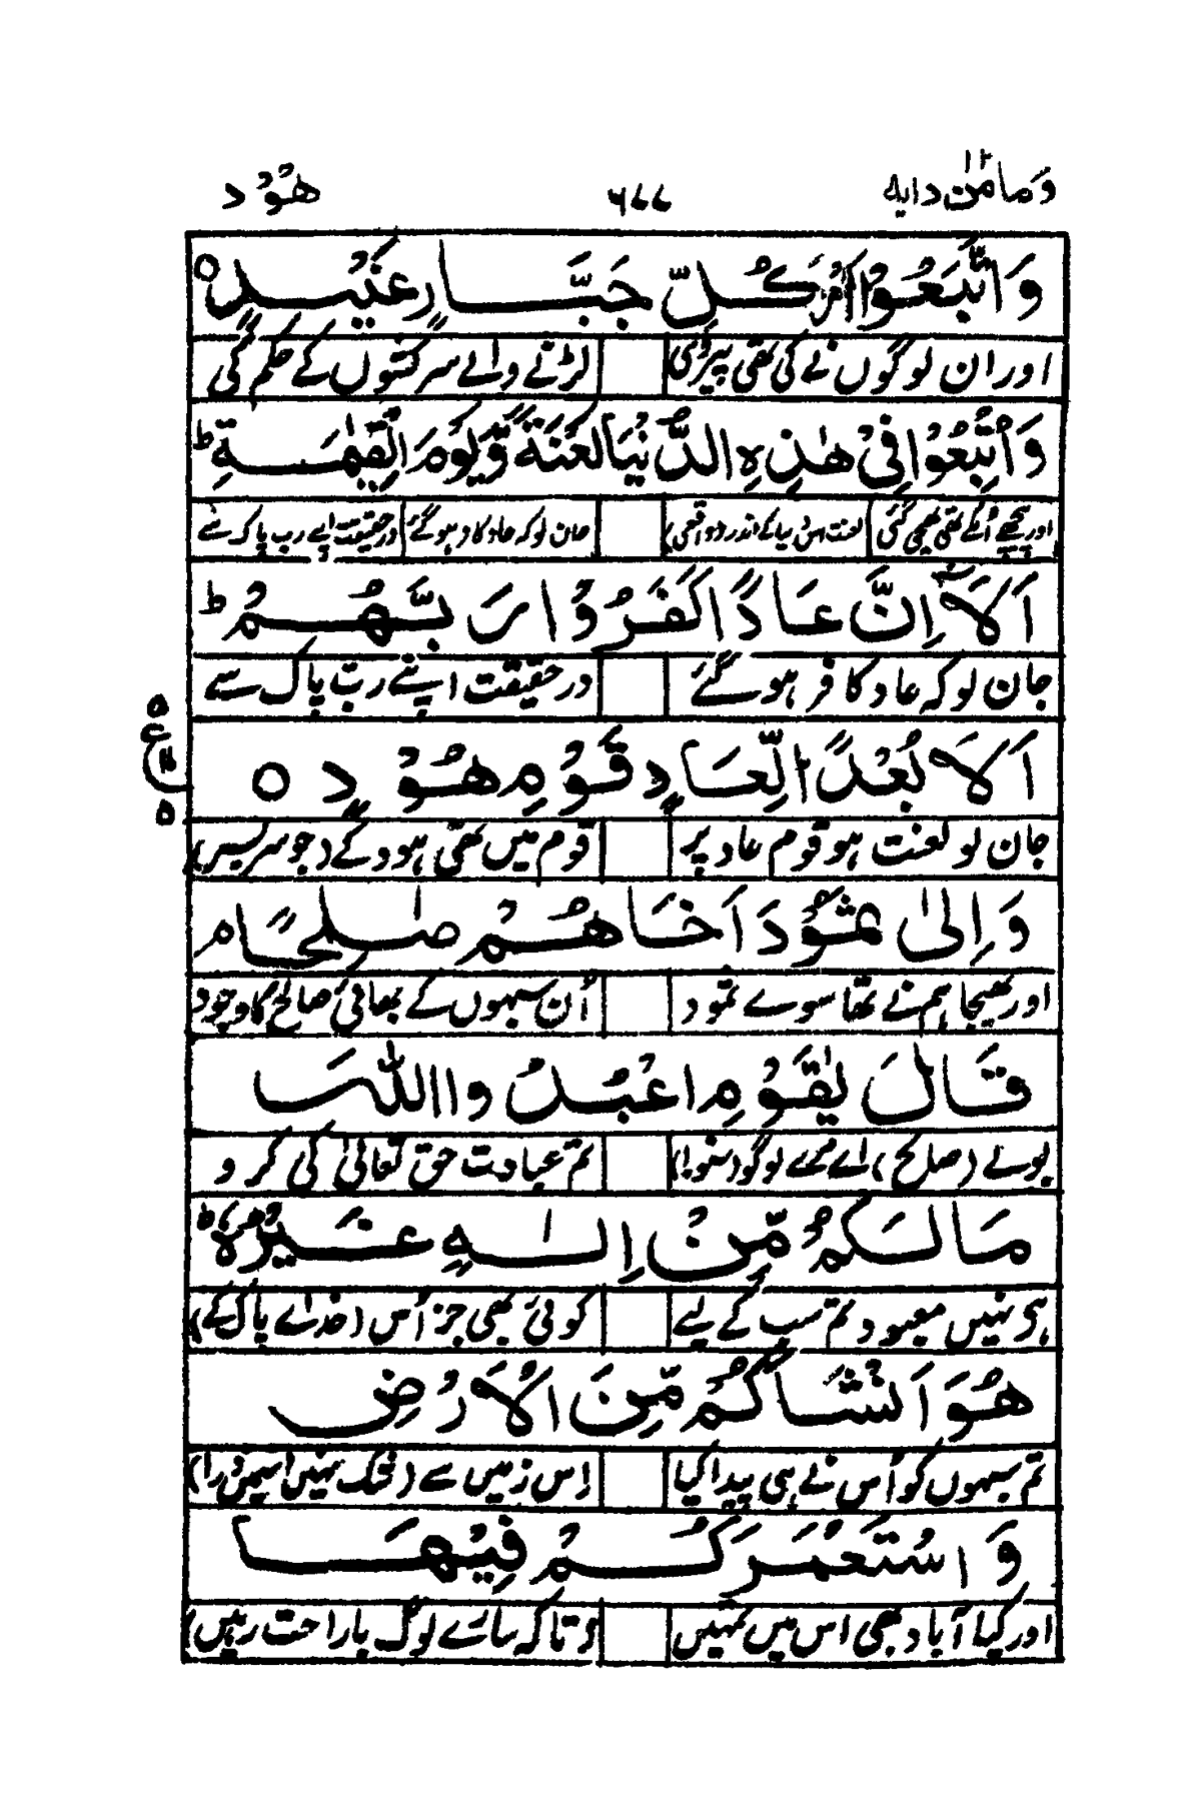 وَمامن دابه ١٢ ٦٧٧ هُوْد
وَاتَّبَعُوْا اَمْرَ كُلِّ جَبَّارٍ عَنِيْدٍ ○
اور ان لوگوں نے کی تھی پیروی لڑنے والے سرکشوں کے حکم کی
وَاُتْبِعُوْا فِيْ هٰذِهِ الدُّنْيَا لَعْنَةً وَّيَوْمَ الْقِيٰمَةِ ؕ
اور پیچھے اُنکے تھی بھیجی گئی لعنت اس دنیا کے اندر (واقعی) جان لو کہ عاد کافر ہو گئے درحقیقت اپنے رب پاک سے
اَلَآ اِنَّ عَادًا كَفَرُوْا رَبَّهُمْ ؕ
جان لو کہ عاد کافر ہو گئے درحقیقت اپنے رب پاک سے
اَلَا بُعْدًا لِّعَادٍ قَوْمِ هُوْدٍ ○
٥ ع ٥
جان لو لعنت ہو قوم عاد پر قوم میں تھی ہود کے (جو سربسر)
وَاِلٰى ثَمُوْدَ اَخَاهُمْ صٰلِحًا م
اور بھیجا ہم نے تھا سوے ثمود اُن سبھوں کے بھائی صالح کا وجود
قَالَ يٰقَوْمِ اعْبُدُوا اللّٰهَ
بولے (صالح) اے مرے لوگو (سنو!) تم عبادت حق تعالیٰ کی کرو
مَا لَكُمْ مِّنْ اِلٰهٍ غَيْرُهٗ ؕ
ہی نہیں معبود تم سب کے لیے کوئی بھی جز اُس (خدائے پاک کے)
هُوَ اَنْشَاَكُمْ مِّنَ الْاَرْضِ
تم سبھوں کو اُس نے ہی پیدا کیا اِس زمیں سے (شک نہیں اسمیں ذرا)
وَاسْتَعْمَرَكُمْ فِيْهَا
اور کیا آباد بھی اس میں تمہیں (تاکہ سارے لوگ باراحت رہیں)